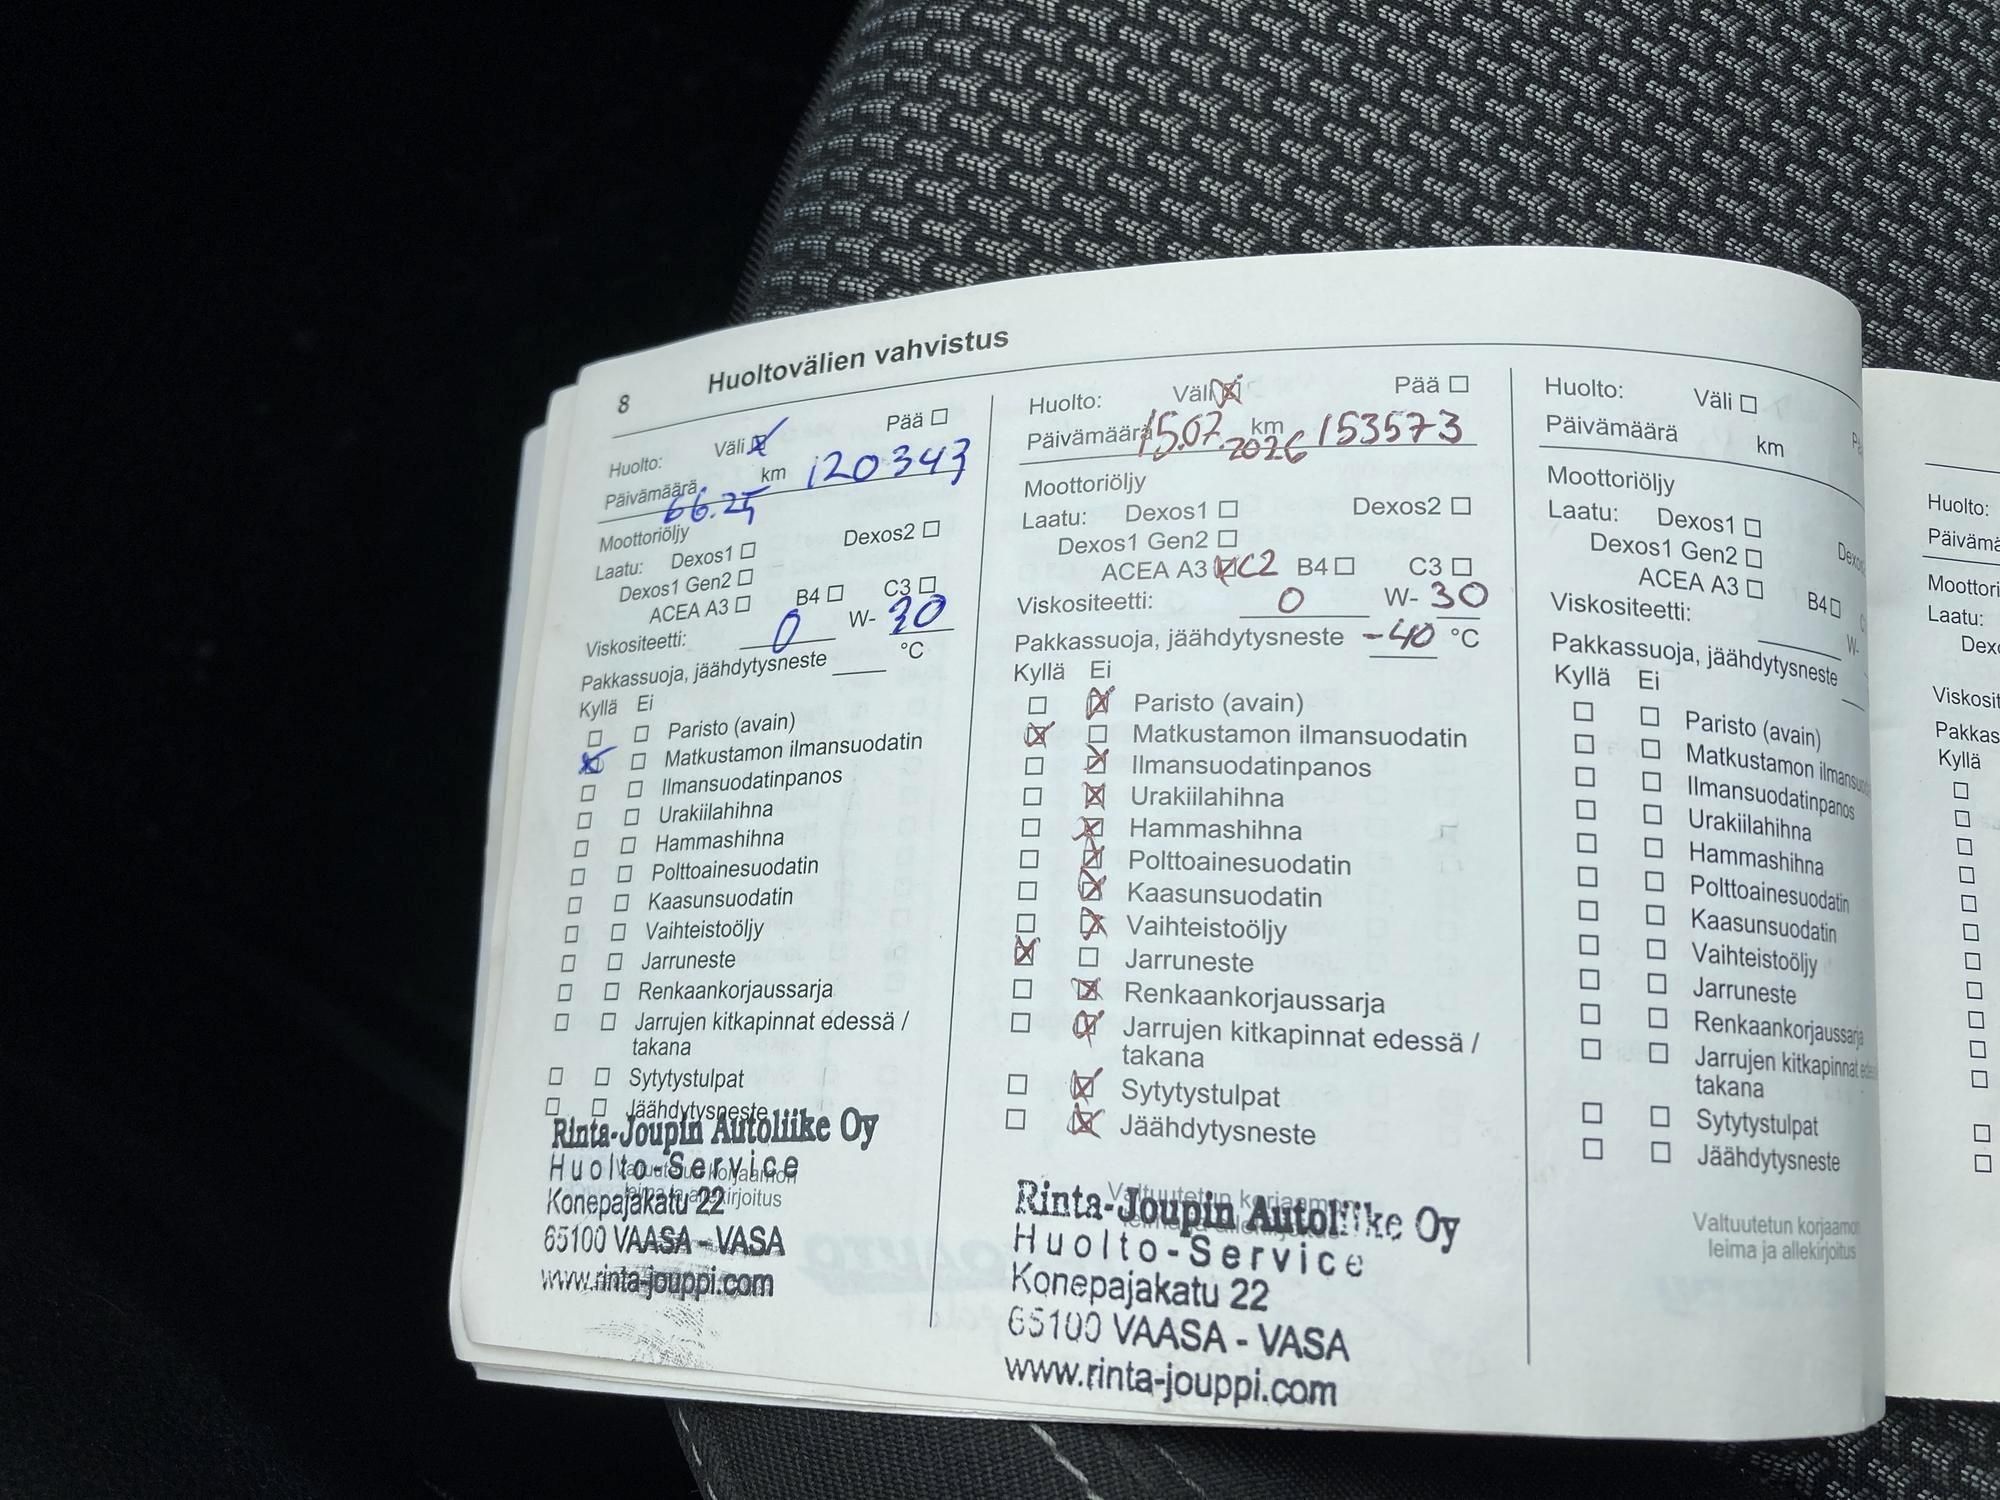 8 Huoltovälien vahvistus
Huolto: Väli Pää
Päivämäärä 66.25 km 120343
Moottoriöljy
Laatu: Dexos1 Dexos2
Dexos1 Gen2
ACEA A3 B4 C3
Viskositeetti: 0 W- 30
Pakkassuoja, jäähdytysneste °C
Kyllä Ei
Paristo (avain)
Matkustamon ilmansuodatin
Ilmansuodatinpanos
Urakiilahihna
Hammashihna
Polttoainesuodatin
Kaasunsuodatin
Vaihteistoöljy
Jarruneste
Renkaankorjaussarja
Jarrujen kitkapinnat edessä /
takana
Sytytystulpat
Jäähdytysneste
Valtuutetun korjaamon
leima ja allekirjoitus
Rinta-Joupin Autoliike Oy
Huolto-Service
Konepajakatu 22
65100 VAASA - VASA
www.rinta-jouppi.com
Huolto: Väli Pää
Päivämäärä 15.07.2026 km 153573
Moottoriöljy
Laatu: Dexos1 Dexos2
Dexos1 Gen2
ACEA A3 C2 B4 C3
Viskositeetti: 0 W- 30
Pakkassuoja, jäähdytysneste -40 °C
Kyllä Ei
Paristo (avain)
Matkustamon ilmansuodatin
Ilmansuodatinpanos
Urakiilahihna
Hammashihna
Polttoainesuodatin
Kaasunsuodatin
Vaihteistoöljy
Jarruneste
Renkaankorjaussarja
Jarrujen kitkapinnat edessä /
takana
Sytytystulpat
Jäähdytysneste
Valtuutetun korjaamon
leima ja allekirjoitus
Rinta-Joupin Autoliike Oy
Huolto-Service
Konepajakatu 22
65100 VAASA - VASA
www.rinta-jouppi.com
Huolto: Väli
Päivämäärä km
Moottoriöljy
Laatu: Dexos1
Dexos1 Gen2
ACEA A3 B4
Viskositeetti: W-
Pakkassuoja, jäähdytysneste
Kyllä Ei
Paristo (avain)
Matkustamon
Ilmansuodatinpanos
Urakiilahihna
Hammashihna
Polttoainesuodatin
Kaasunsuodatin
Vaihteistoöljy
Jarruneste
Renkaankorjaussarja
Jarrujen kitkapinnat
takana
Sytytystulpat
Jäähdytysneste
Valtuutetun korjaamon
leima ja allekirjoitus
Huolto:
Laatu:
Kyllä